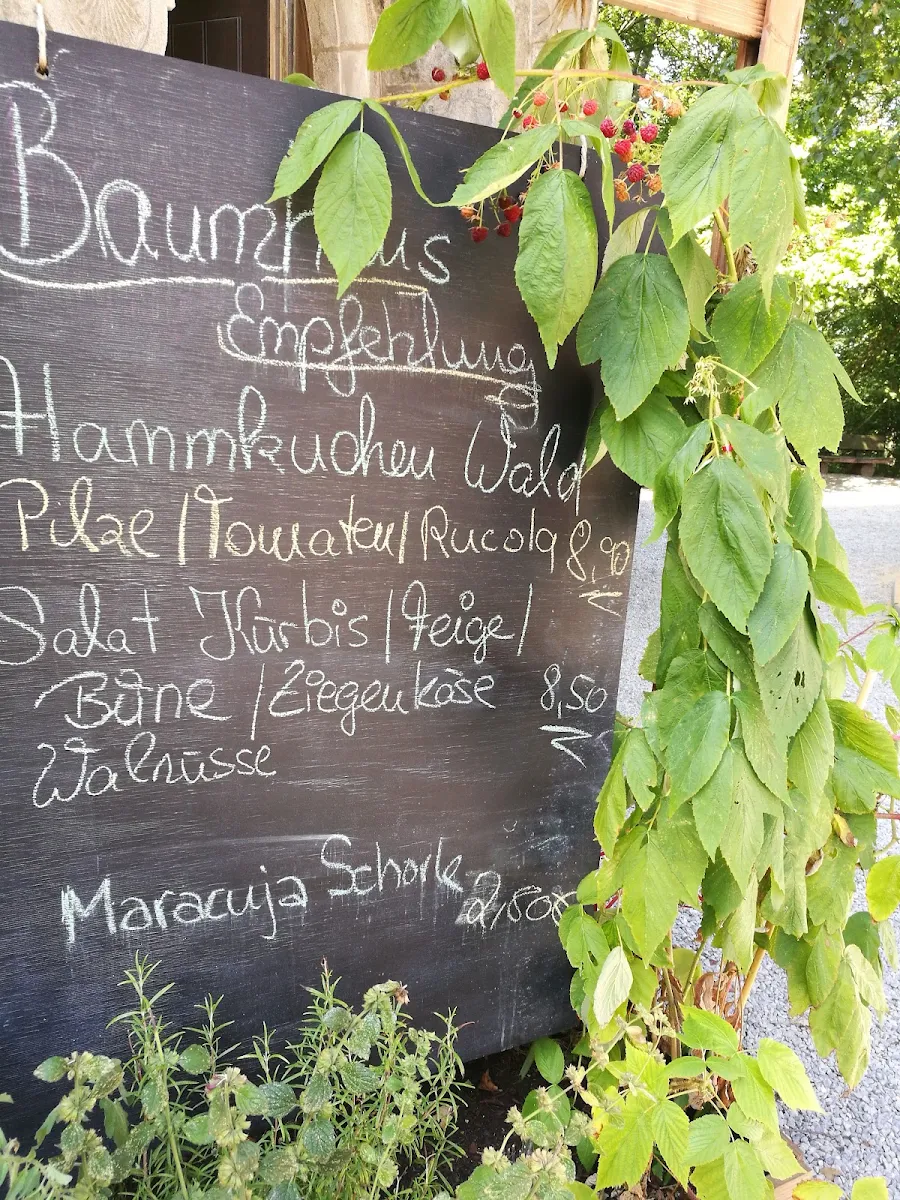 Baumhaus
Empfehlung
Flammkuchen Wald
Pilze / Tomaten / Rucola 8,90
Salat Kürbis / Feige /
Birne / Ziegenkäse 8,50
Walnüsse
Maracuja Schorle 2,80€